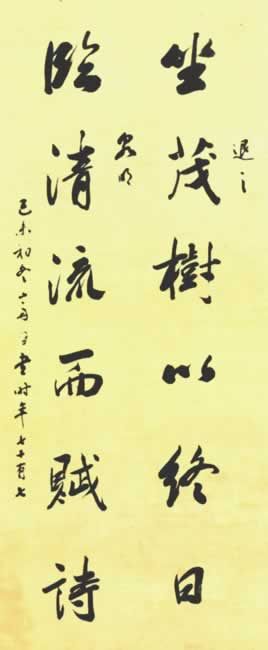 退之
坐茂樹以終日
泉明
臨清流而賦詩
己未初冬 書时年七十有七